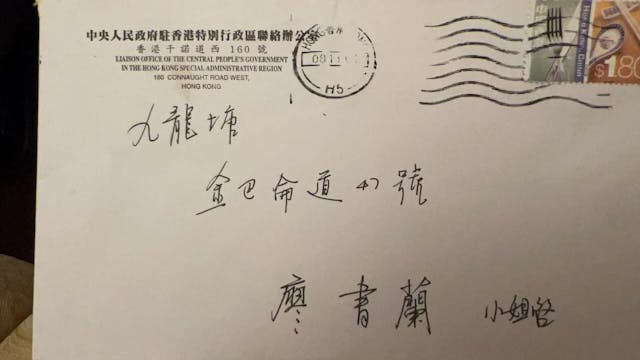 中央人民政府駐香港特別行政區聯絡辦公
香港干諾道西 160 號
LIAISON OFFICE OF THE CENTRAL PEOPLE'S GOVERNMENT
IN THE HONG KONG SPECIAL ADMINISTRATIVE REGION
160 CONNAUGHT ROAD WEST,
HONG KONG
H5
$1.80
九龍塘
金巴倫道47號
廖書蘭 小姐啓